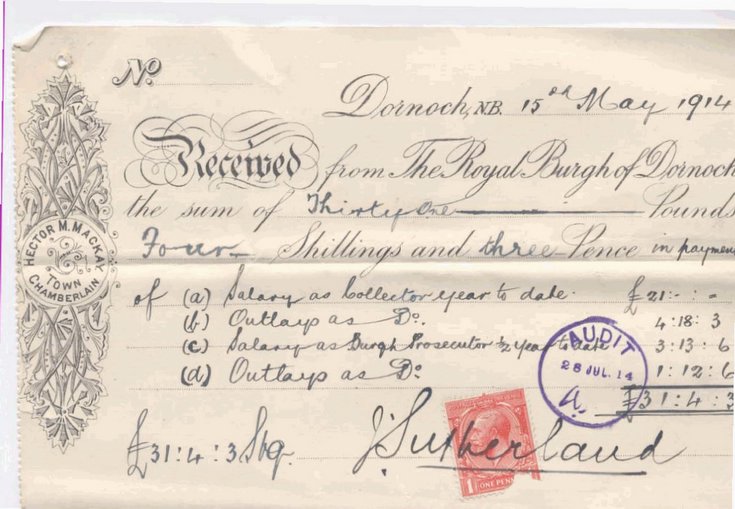 No.
Dornoch, N.B. 15th May 1914
Received from The Royal Burgh of Dornoch
the sum of Thirty One Pounds
Four Shillings and three Pence in paymen
of (a) Salary as Collector year to date £21:-:-
(b) Outlays as Do. 4:18:3
(c) Salary as Burgh Prosecutor ½ year to date 3:13:6
(d) Outlays as Do. 1:12:6
£31:4:3
£31:4:3 Stg.
J Sutherland
HECTOR M. MACKAY
TOWN
CHAMBERLAIN
AUDIT
28 JUL. 14
1 ONE PEN